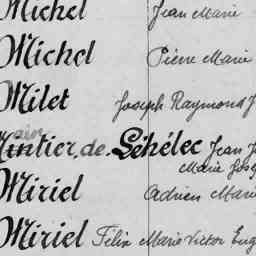 Michel Jean Marie
Michel Pierre Marie
Milet Joseph Raymond J
Mintier, de Léhélec Jean J
Marie Jose
Miriel Adrien Marie
Miriel Félix Marie Victor Eug